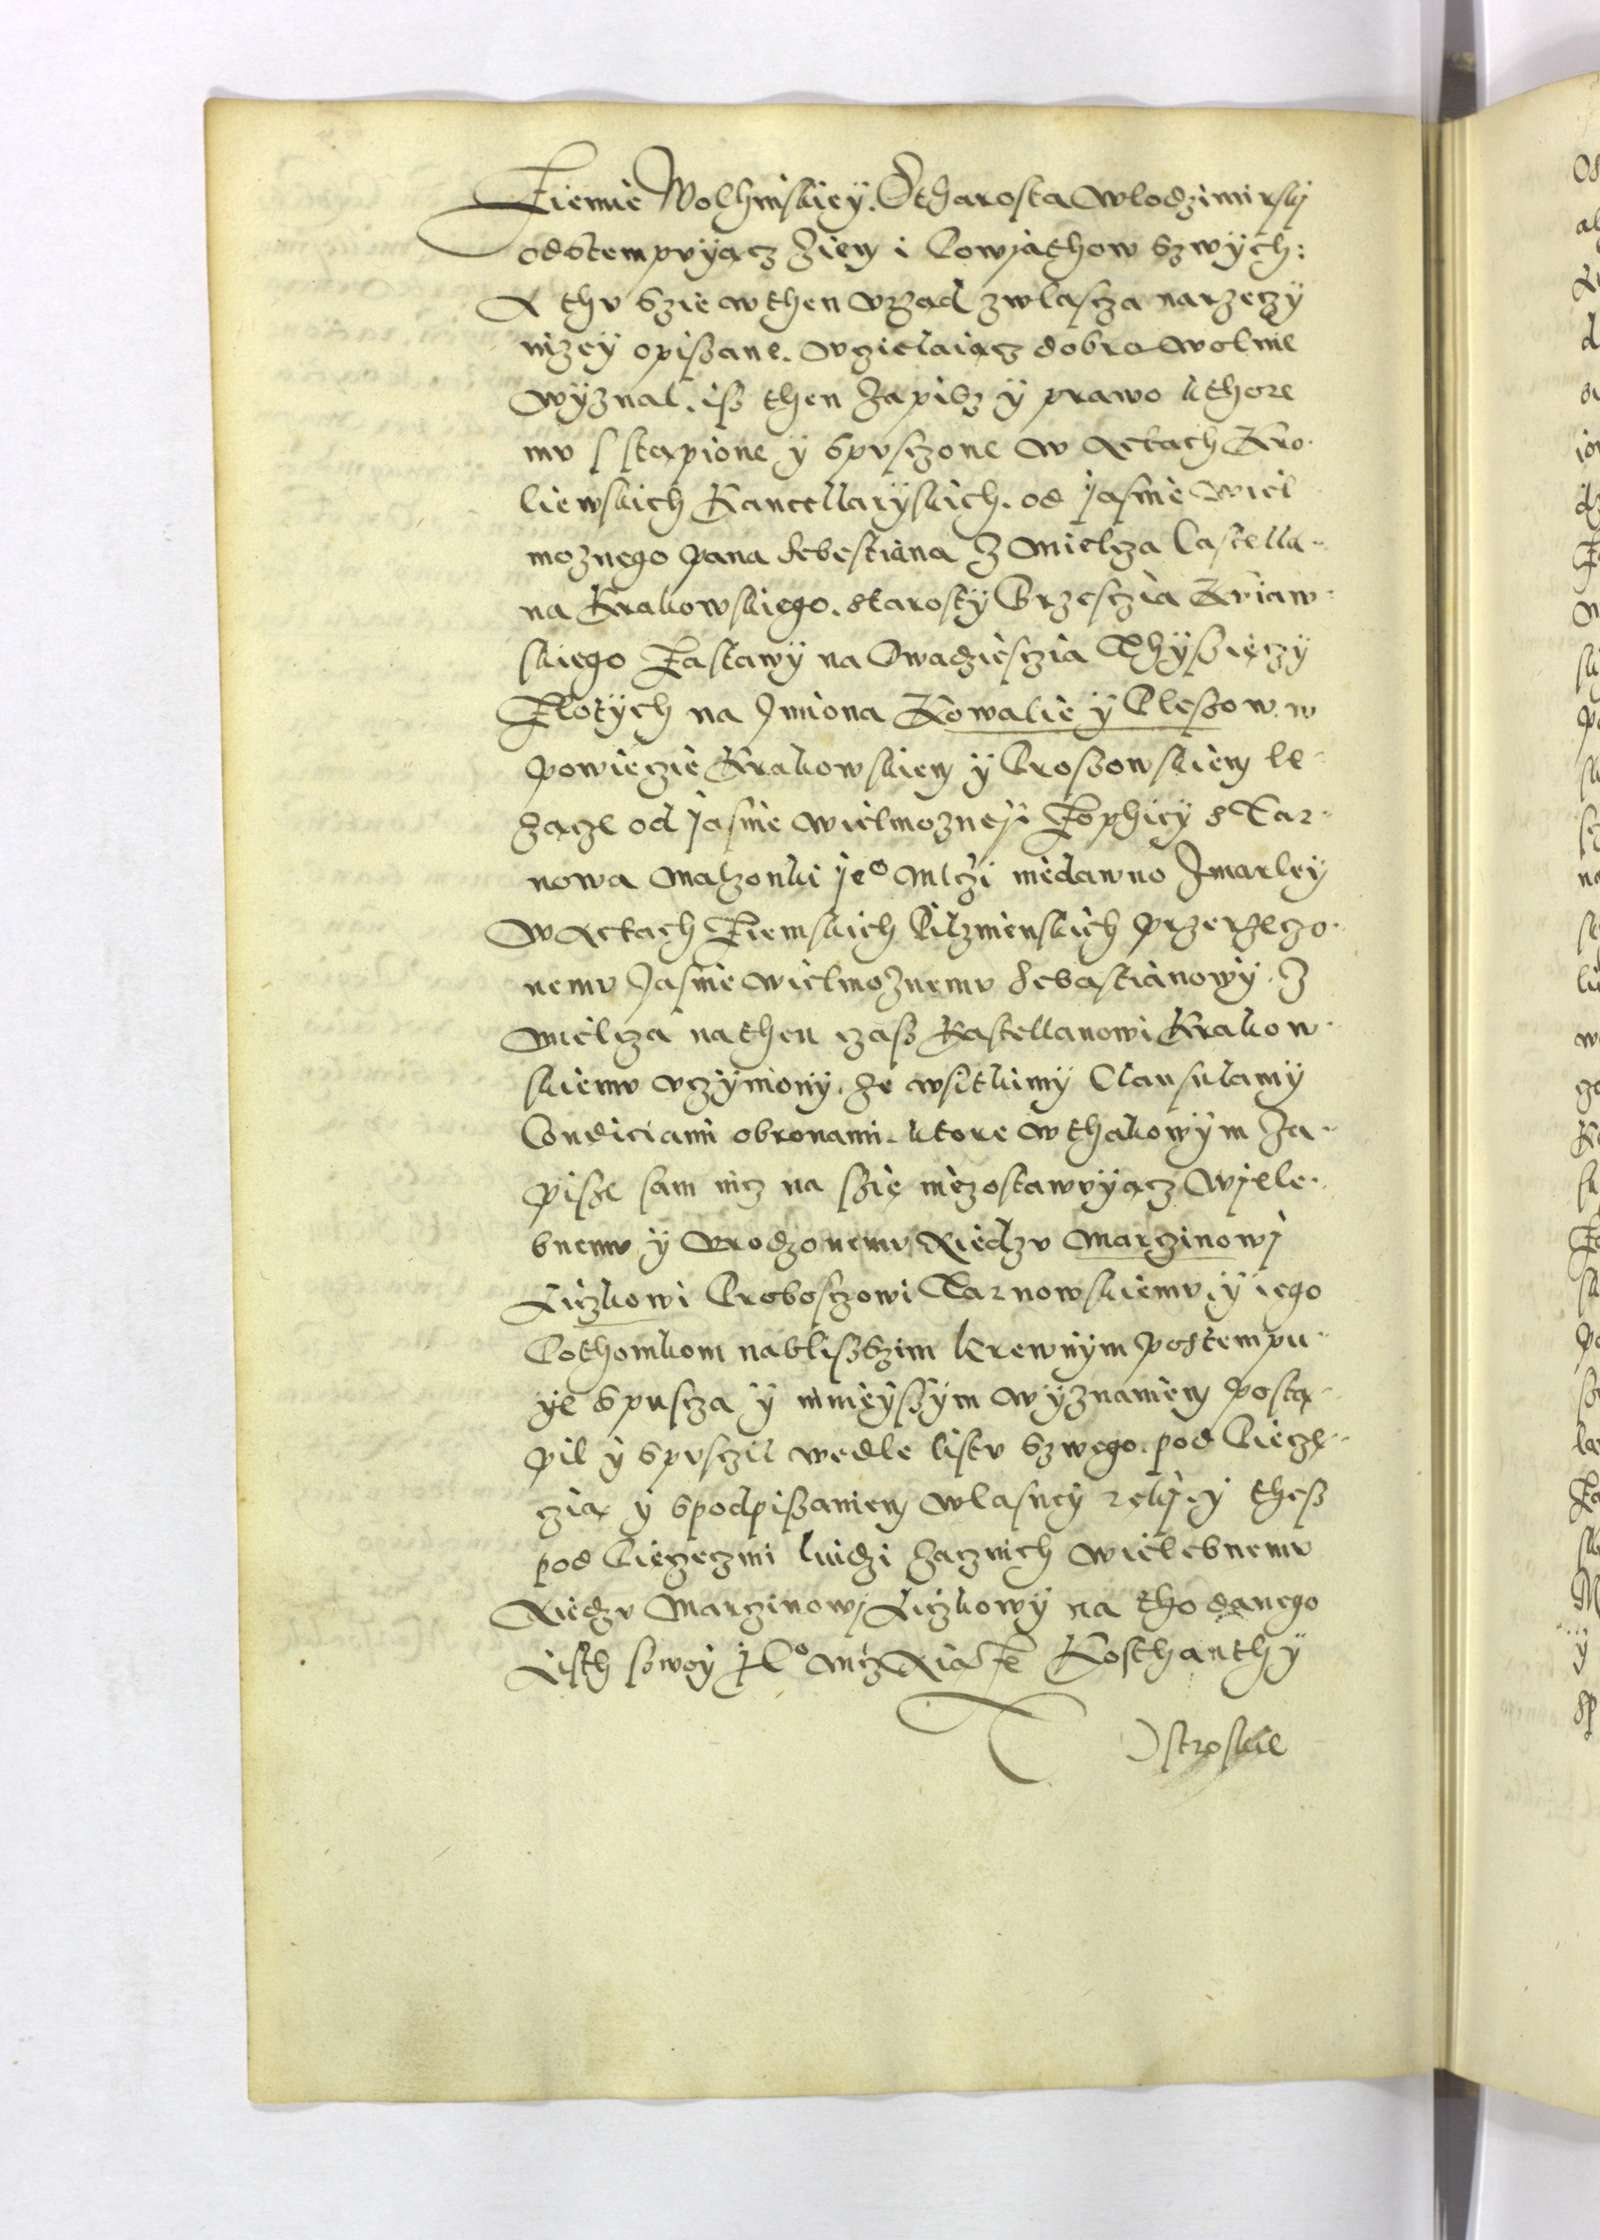 Ziemie Wolhinskiey. Stharosta Wlodzimirskij
odstempvyącz Ziem i Powiathow Szwych:
A thv Szie w then vrząd zwlascza na rzeczy
nizey opissane. wcielaiącz dobrowolnie
wyznal. iss then Zapisz y prawo kthore
mv sstąpione y spvsczone w Actach Kro
liewskich Kancellaryskich. od Jasnie wiel
moznego Pana Sebestiana Z Mielcza Castella
na Krakowskiego. Starosty Brzesczia Kviaw
skiego Zastawy na Dwadziesczia Thyssięczy
Złotych na Jmiona Kowalie y Plessow. w
powieczie Krakowskiem y Prossowskiem le
zącze od Jasnie wielmozneji Zophiey s Tar
nowa Malzonki Jeo Mlczi niedawno Zmarley
W Actach Ziemskich Pilznienskich przerzeczo
nemv Jasnie wielmoznemv Sebastianowy. Z
Mielcza na then czass Kastellanowi Krakow
skiemv vczyniony. ze wsitkimy Clausulamy
Condiciami obronami. ktore w thakowym Za
pisse sam nicz na ssię niezostawvyącz Wiele
bnemv y vrodzonemv Xiedzv Marczinowi
Liczkowi Proboszczowi Tarnowskiemv. y iego
Pothomkom nablisszim krewnym postempu
ye spuscza y ninieyssym wyznaniem postą
pil y spvsczil wedle listv Szwego. pod Piecze
czią y spodpissaniem wlasney ręky. y thess
pod Pieczeczmi luidzi zacznich wielebnemv
Xiedzv Marczinowi Liczkowy na tho danego
Listh sswoy Jeo Mcz Xiąze Kosthanthy
Ostroskie